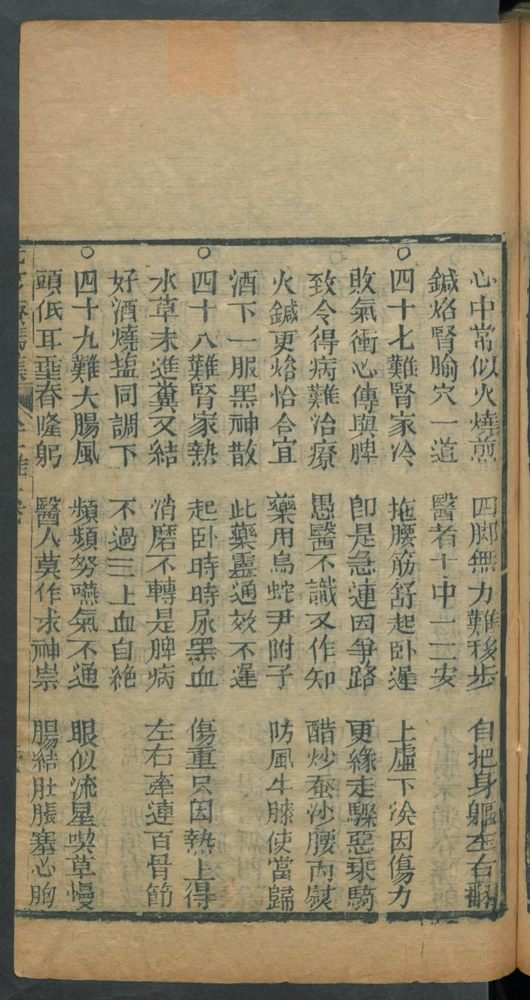 心中常似火燒煎 四脚無力難移步 自把身軀左右翻
鍼烙腎腧穴一道 醫者十中一二安
○四十七難腎家冷 拖腰筋舒起卧遲 上虛下冷因傷力
敗氣衝心傳與脾 卽是急連因爭路 更緣走驟惡乗騎
致令得病難治療 愚醫不識又作知 醋炒蚕沙腰內熨
火鍼更烙恰合宜 藥用烏蛇尹附子 防風牛膝使當歸
酒下一服黑神散 此藥靈通效不遲
○四十八難腎家熱 起卧時時尿黑血 傷重只因熱上得
水草未進糞又結 消磨不轉是脾病 左右牽連百骨節
好酒燒塩同調下 不過三上血自絶
○四十九難大腸風 頻頻努嚥氣不通 眼似流星喫草慢
頭低耳垂春隆躬 醫人莫作求神崇 腸結肚脹塞心胸